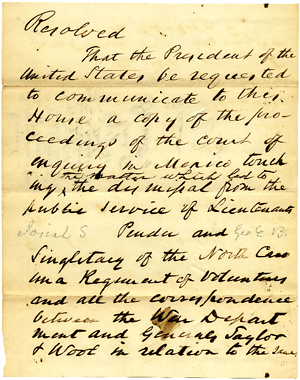 Resolved
That the President of the
United States be requested
to communicate to this
House a copy of the pro-
ceedings of the court of
enquiry in Mexico touch
ing the matter which led to
the dismissal from the
public service of Lieutenants
Josiah S Pender and Geo E B.
Singletary of the North Caro
lina Regiment of Volunteers
and all the correspondence
between the War Depart
ment and Generals Taylor
& Wool in relation to the same